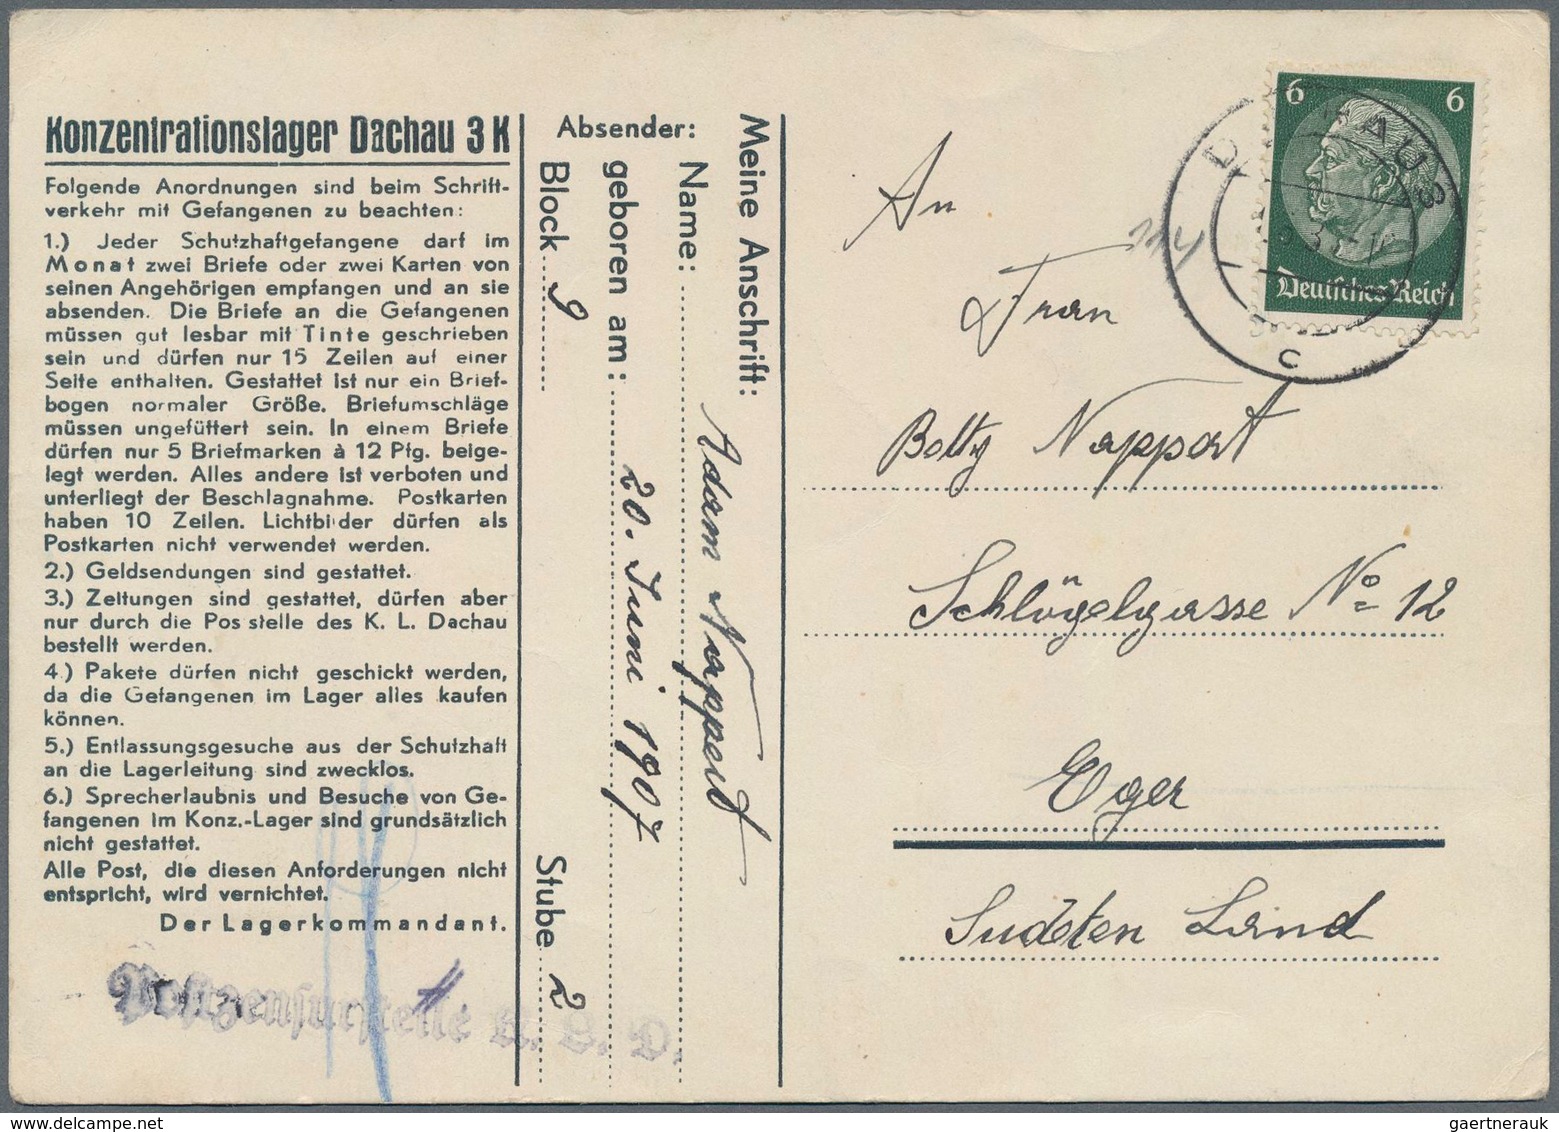 Konzentrationslager Dachau 3 K
Folgende Anordnungen sind beim Schrift-
verkehr mit Gefangenen zu beachten:
1.) Jeder Schutzhaftgefangene darf im
Monat zwei Briefe oder zwei Karten von
seinen Angehörigen empfangen und an sie
absenden. Die Briefe an die Gefangenen
müssen gut lesbar mit Tinte geschrieben
sein und dürfen nur 15 Zeilen auf einer
Seite enthalten. Gestattet ist nur ein Brief-
bogen normaler Größe. Briefumschläge
müssen ungefüttert sein. In einem Briefe
dürfen nur 5 Briefmarken à 12 Pfg. beige-
legt werden. Alles andere ist verboten und
unterliegt der Beschlagnahme. Postkarten
haben 10 Zeilen. Lichtbilder dürfen als
Postkarten nicht verwendet werden.
2.) Geldsendungen sind gestattet.
3.) Zeitungen sind gestattet, dürfen aber
nur durch die Pos stelle des K. L. Dachau
bestellt werden.
4.) Pakete dürfen nicht geschickt werden,
da die Gefangenen im Lager alles kaufen
können.
5.) Entlassungsgesuche aus der Schutzhaft
an die Lagerleitung sind zwecklos.
6.) Sprecherlaubnis und Besuche von Ge-
fangenen im Konz.-Lager sind grundsätzlich
nicht gestattet.
Alle Post, die diesen Anforderungen nicht
entspricht, wird vernichtet.
Der Lagerkommandant.
Postzensurstelle K. L. D.
Meine Anschrift:
Absender:
Name: Adam Nappert
geboren am: 20. Juni 1907
Block 9 Stube 2
6 6
Deutsches Reich
C
An
Frau
Betty Nappert
Schlögelgasse No 12
Eger
Sudeten Land
gaertnerauk